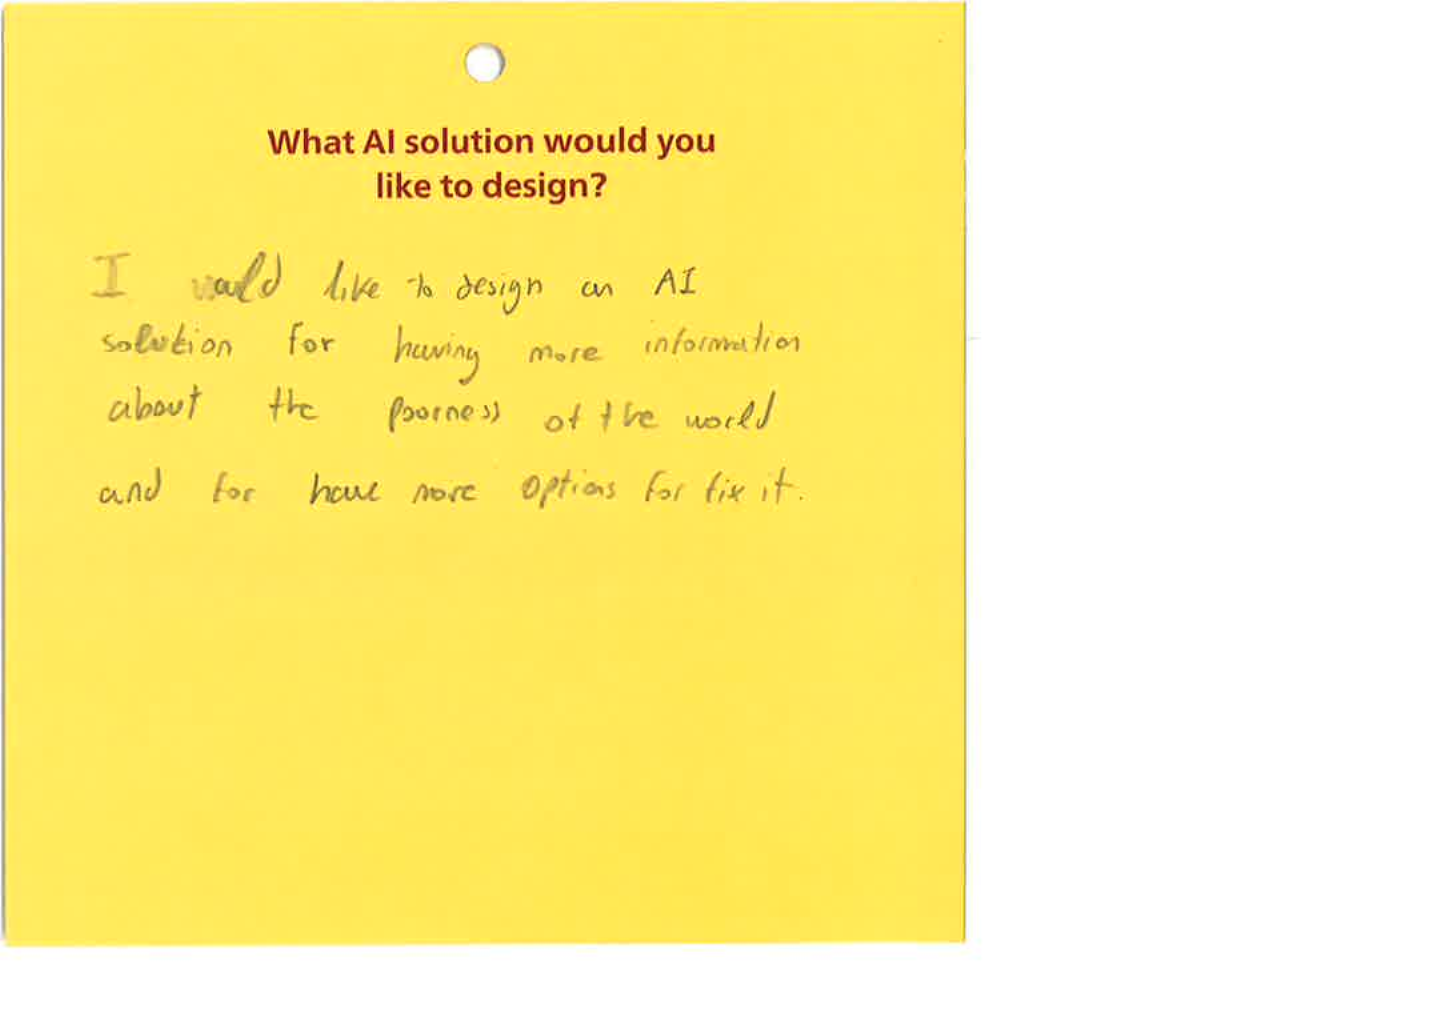 What AI solution would you
like to design?
I would like to design an AI
solution for having more information
about the poorness of the world
and for have more options for fix it.